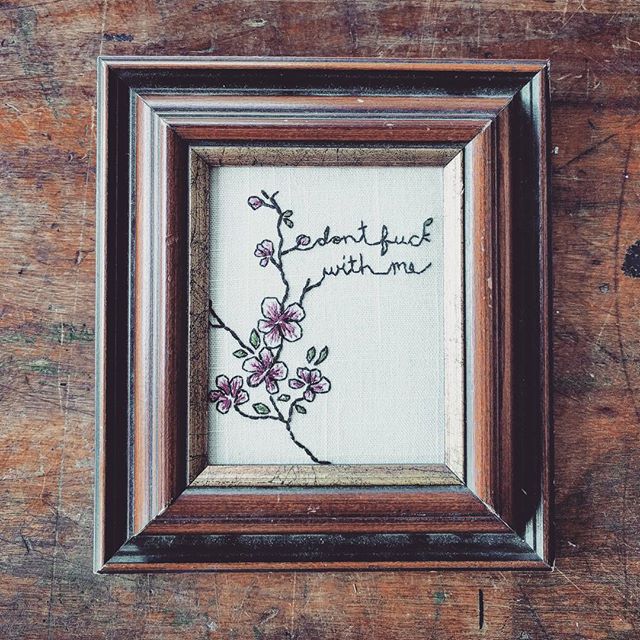 dont fuck
with me